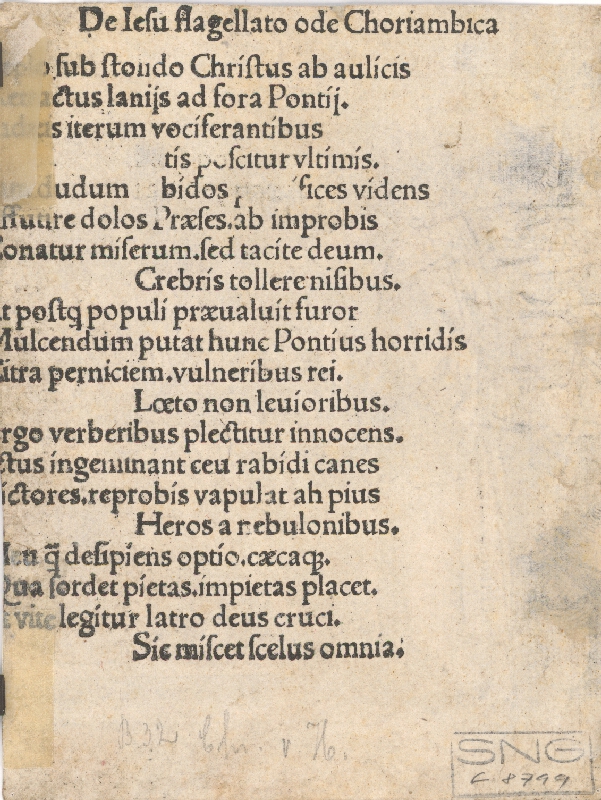 De Ieſu flagellato ode Choriambica
ſub ſtondo Chriſtus ab aulicis
lanijs ad fora Pontij.
iterum vociferantibus
tis poſcitur vltimis.
dudum bidos fices videns
dolos Præſes.ab improbis
Conatur miſerum.ſed tacite deum.
Crebris tollere niſibus.
At poſtꝗ populi præualuit furor
Mulcendum putat hunc Pontius horridis
Citra perniciem.vulneribus rei.
Lœto non leuioribus.
Ergo verberibus plectitur innocens.
Ictus ingeminant ceu rabidi canes
Lictores.reprobis vapulat ah pius
Heros a nebulonibus.
Heu q̃ deſipiens optio.cæcaqꝫ.
Qua ſordet pietas.impietas placet.
Et vite legitur latro deus cruci.
Sic miſcet ſcelus omnia.
B 32
SNG
C 8799